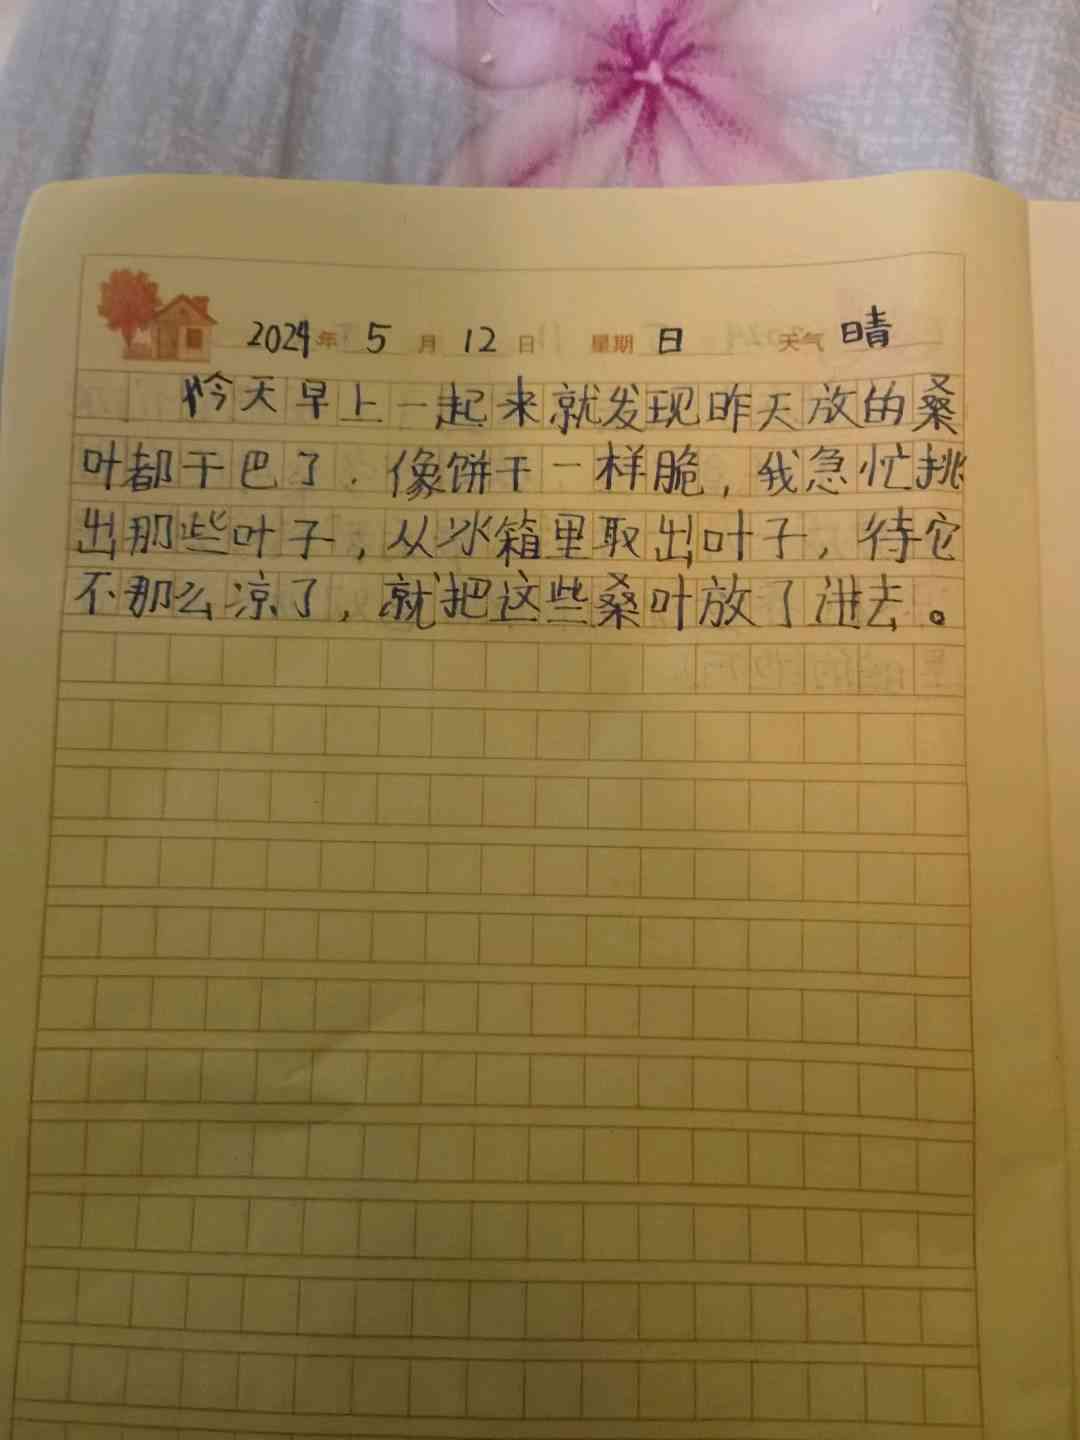 2024年 5月 12日 星期日 天气 晴
今天早上一起来就发现昨天放的桑
叶都干巴了.像饼干一样脆，我急忙挑
出那些叶子，从冰箱里取出叶子，待它
不那么凉了，就把这些桑叶放了进去。